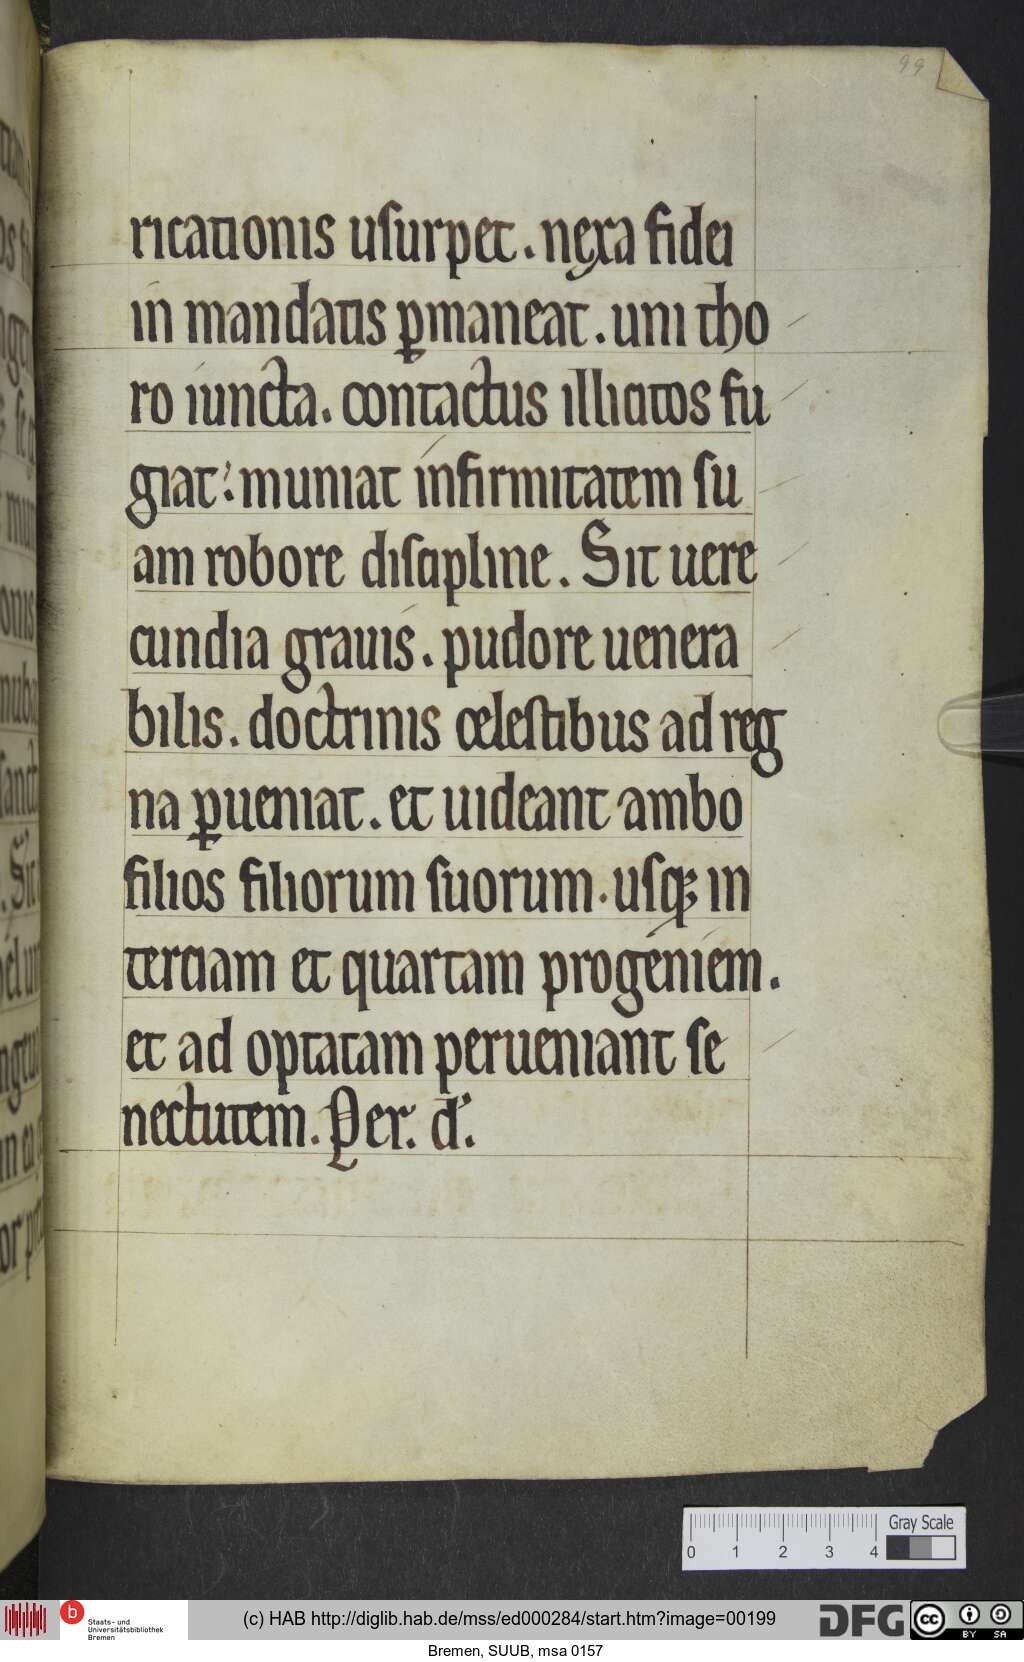 99
ricationis usurpet. nexa fidei
in mandatis ꝑmaneat. uni tho
ro iuncta. contactus illicitos fu
giat: muniat infirmitatem su
am robore discipline. Sit uere
cundia grauis. pudore uenera
bilis. doctrinis celestibus ad reg
na ꝑueniat. et uideant ambo
filios filiorum suorum. usqꝫ in
terciam et quartam progeniem.
et ad optatam perueniant se
nectutem. Per. d.
Gray Scale
0 1 2 3 4
b Staats- und
Universitätsbibliothek
Bremen
(c) HAB http://diglib.hab.de/mss/ed000284/start.htm?image=00199
DFG
cc BY SA
Bremen, SUUB, msa 0157